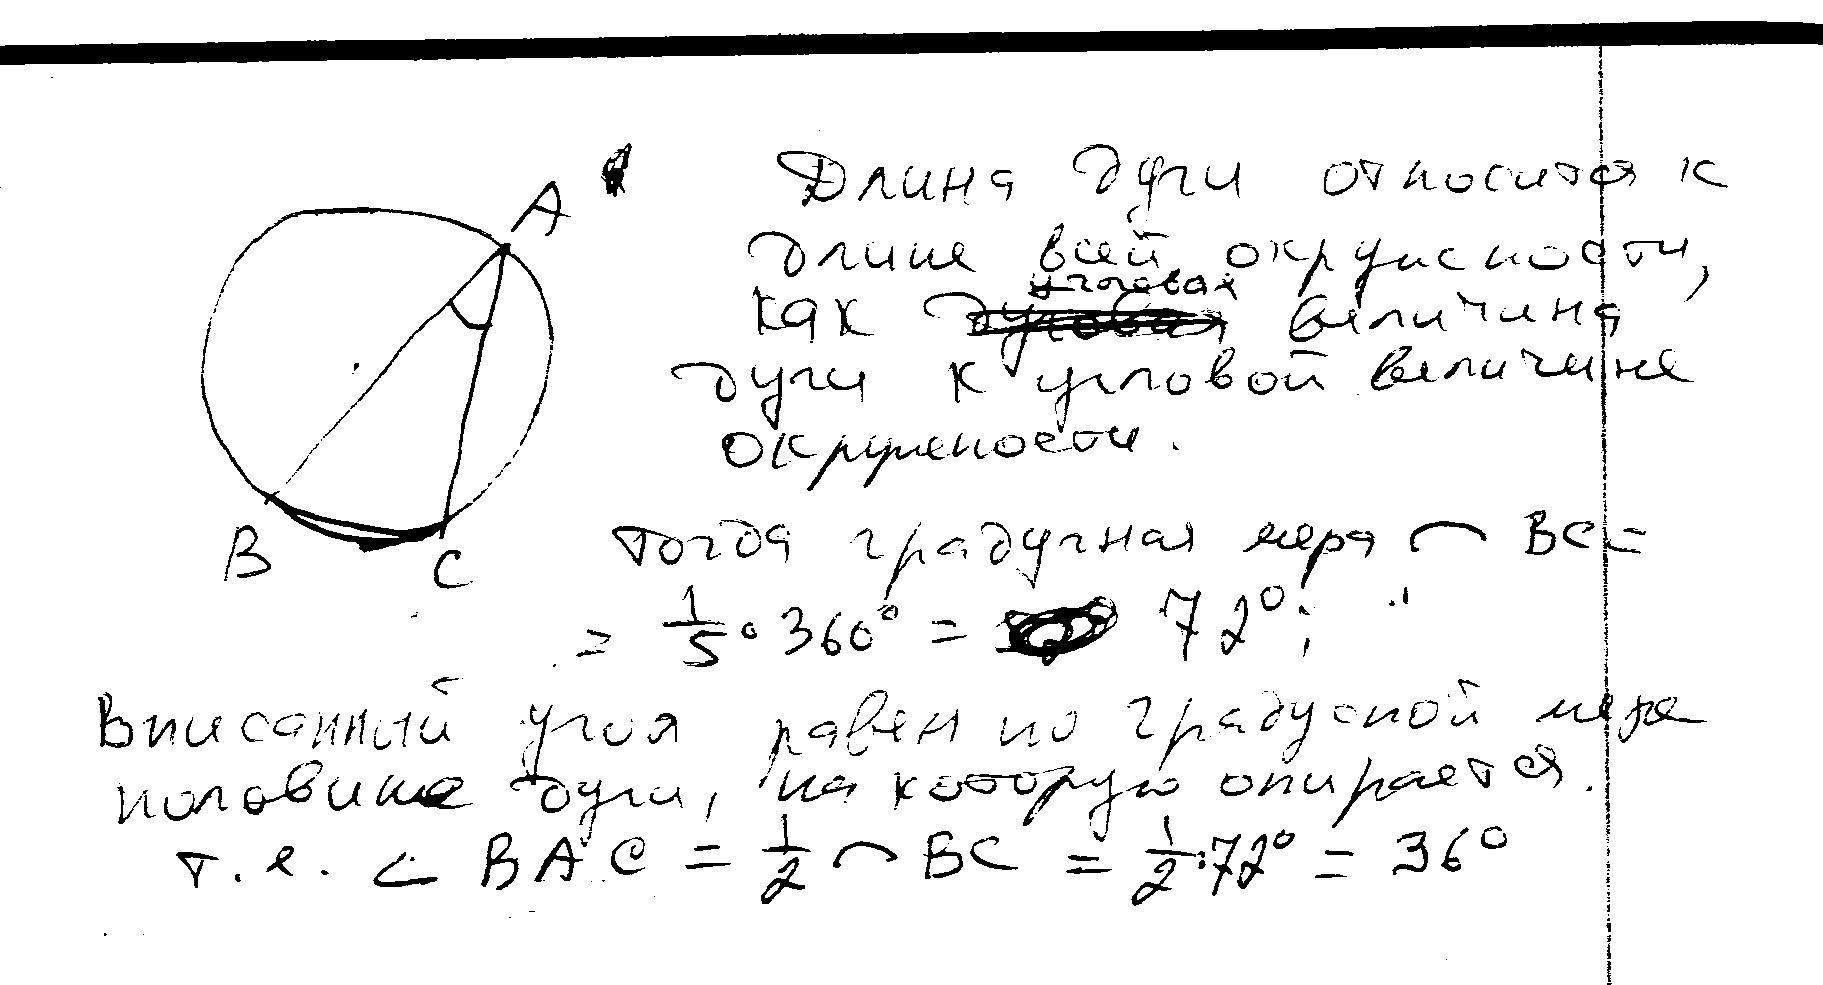 A
Длина дуги относится к
длине всей окружности,
как угловая величина
дуги к угловой величине
окружности.
B C
Тогда градусная мера ⌒ BC =
= 1/5 · 360° = 72°;
Вписанный угол равен по градусной мере
половине дуги, на которую опирается.
т.е. ∠ BAC = 1/2 ⌒ BC = 1/2 · 72° = 36°